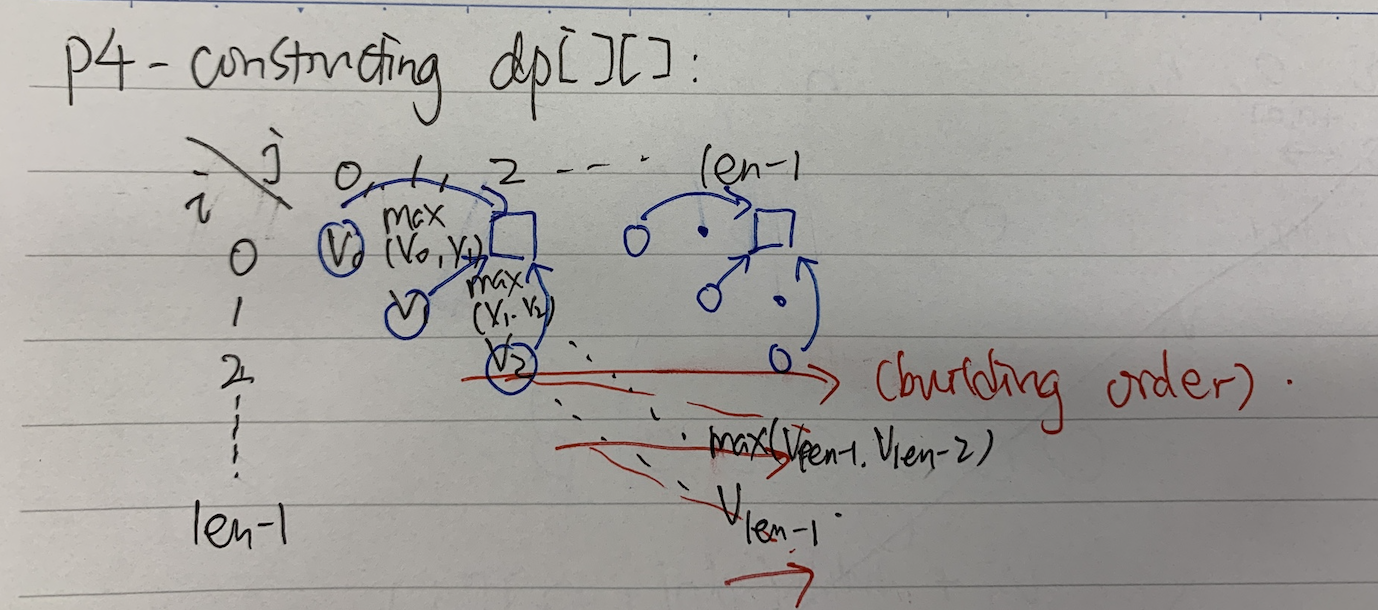 P4 - constructing dp[][]:
j
i
0, 1, 2 --- len-1
0 V0 max
(V0, V1)
1 V1 max
(V1. V2)
2 V2
(building order).
max(Vlen-1. Vlen-2)
len-1 Vlen-1.